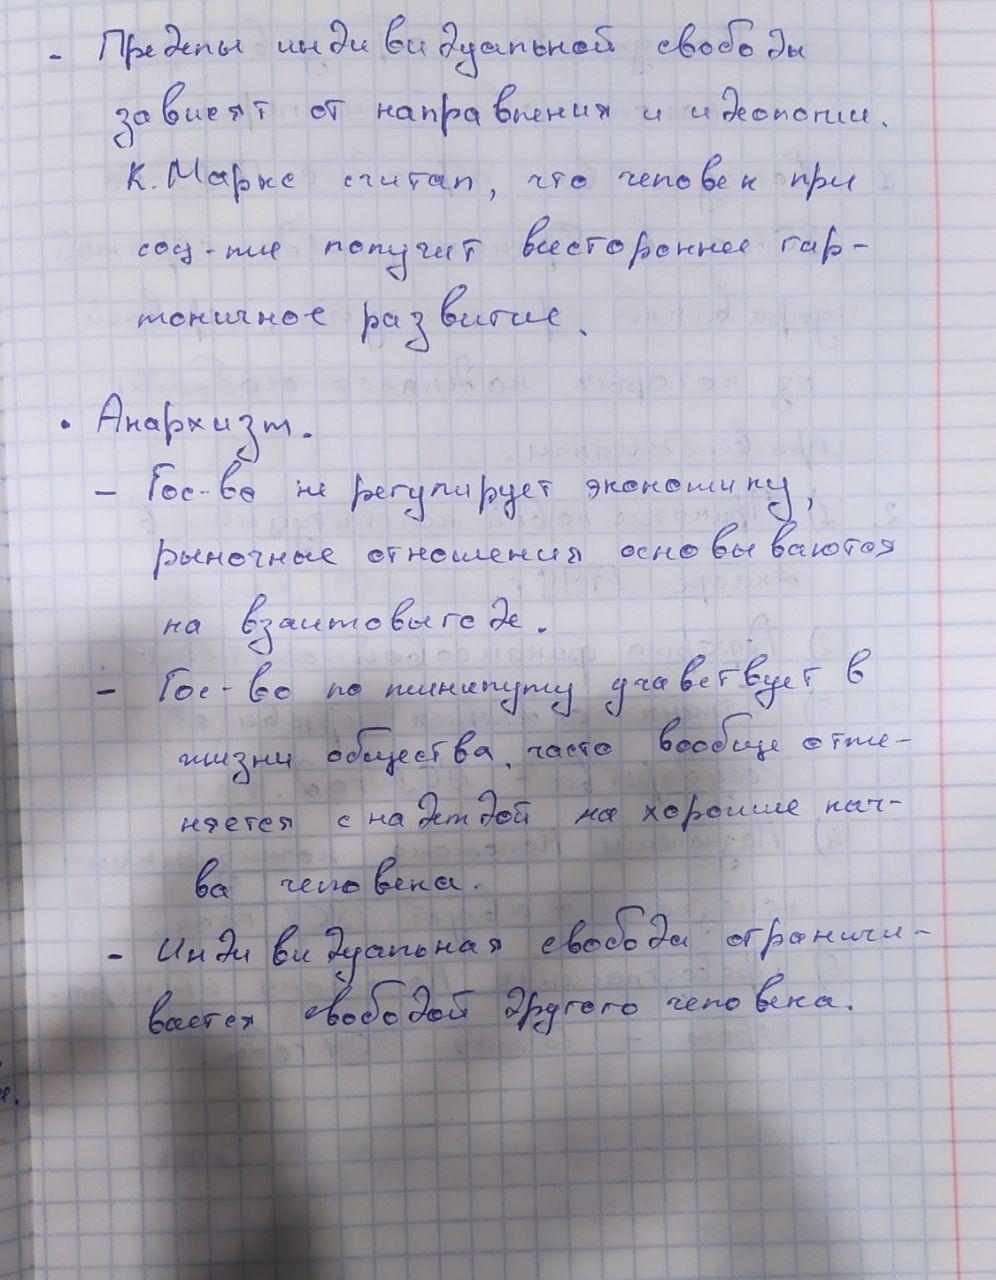 - Пределы индивидуальной свободы
зависят от направления и идеологии.
К. Маркс считал, что человек при
соц-ме получит всестороннее гар-
моничное развитие.
• Анархизм.
- Гос-во не регулирует экономику,
рыночные отношения основываются
на взаимовыгоде.
- Гос-во по минимуму учавствует в
жизни общества, часто вообще отме-
няется с надеждой на хорошие кач-
ва человека.
- Индивидуальная свобода ограничи-
вается свободой другого человека.